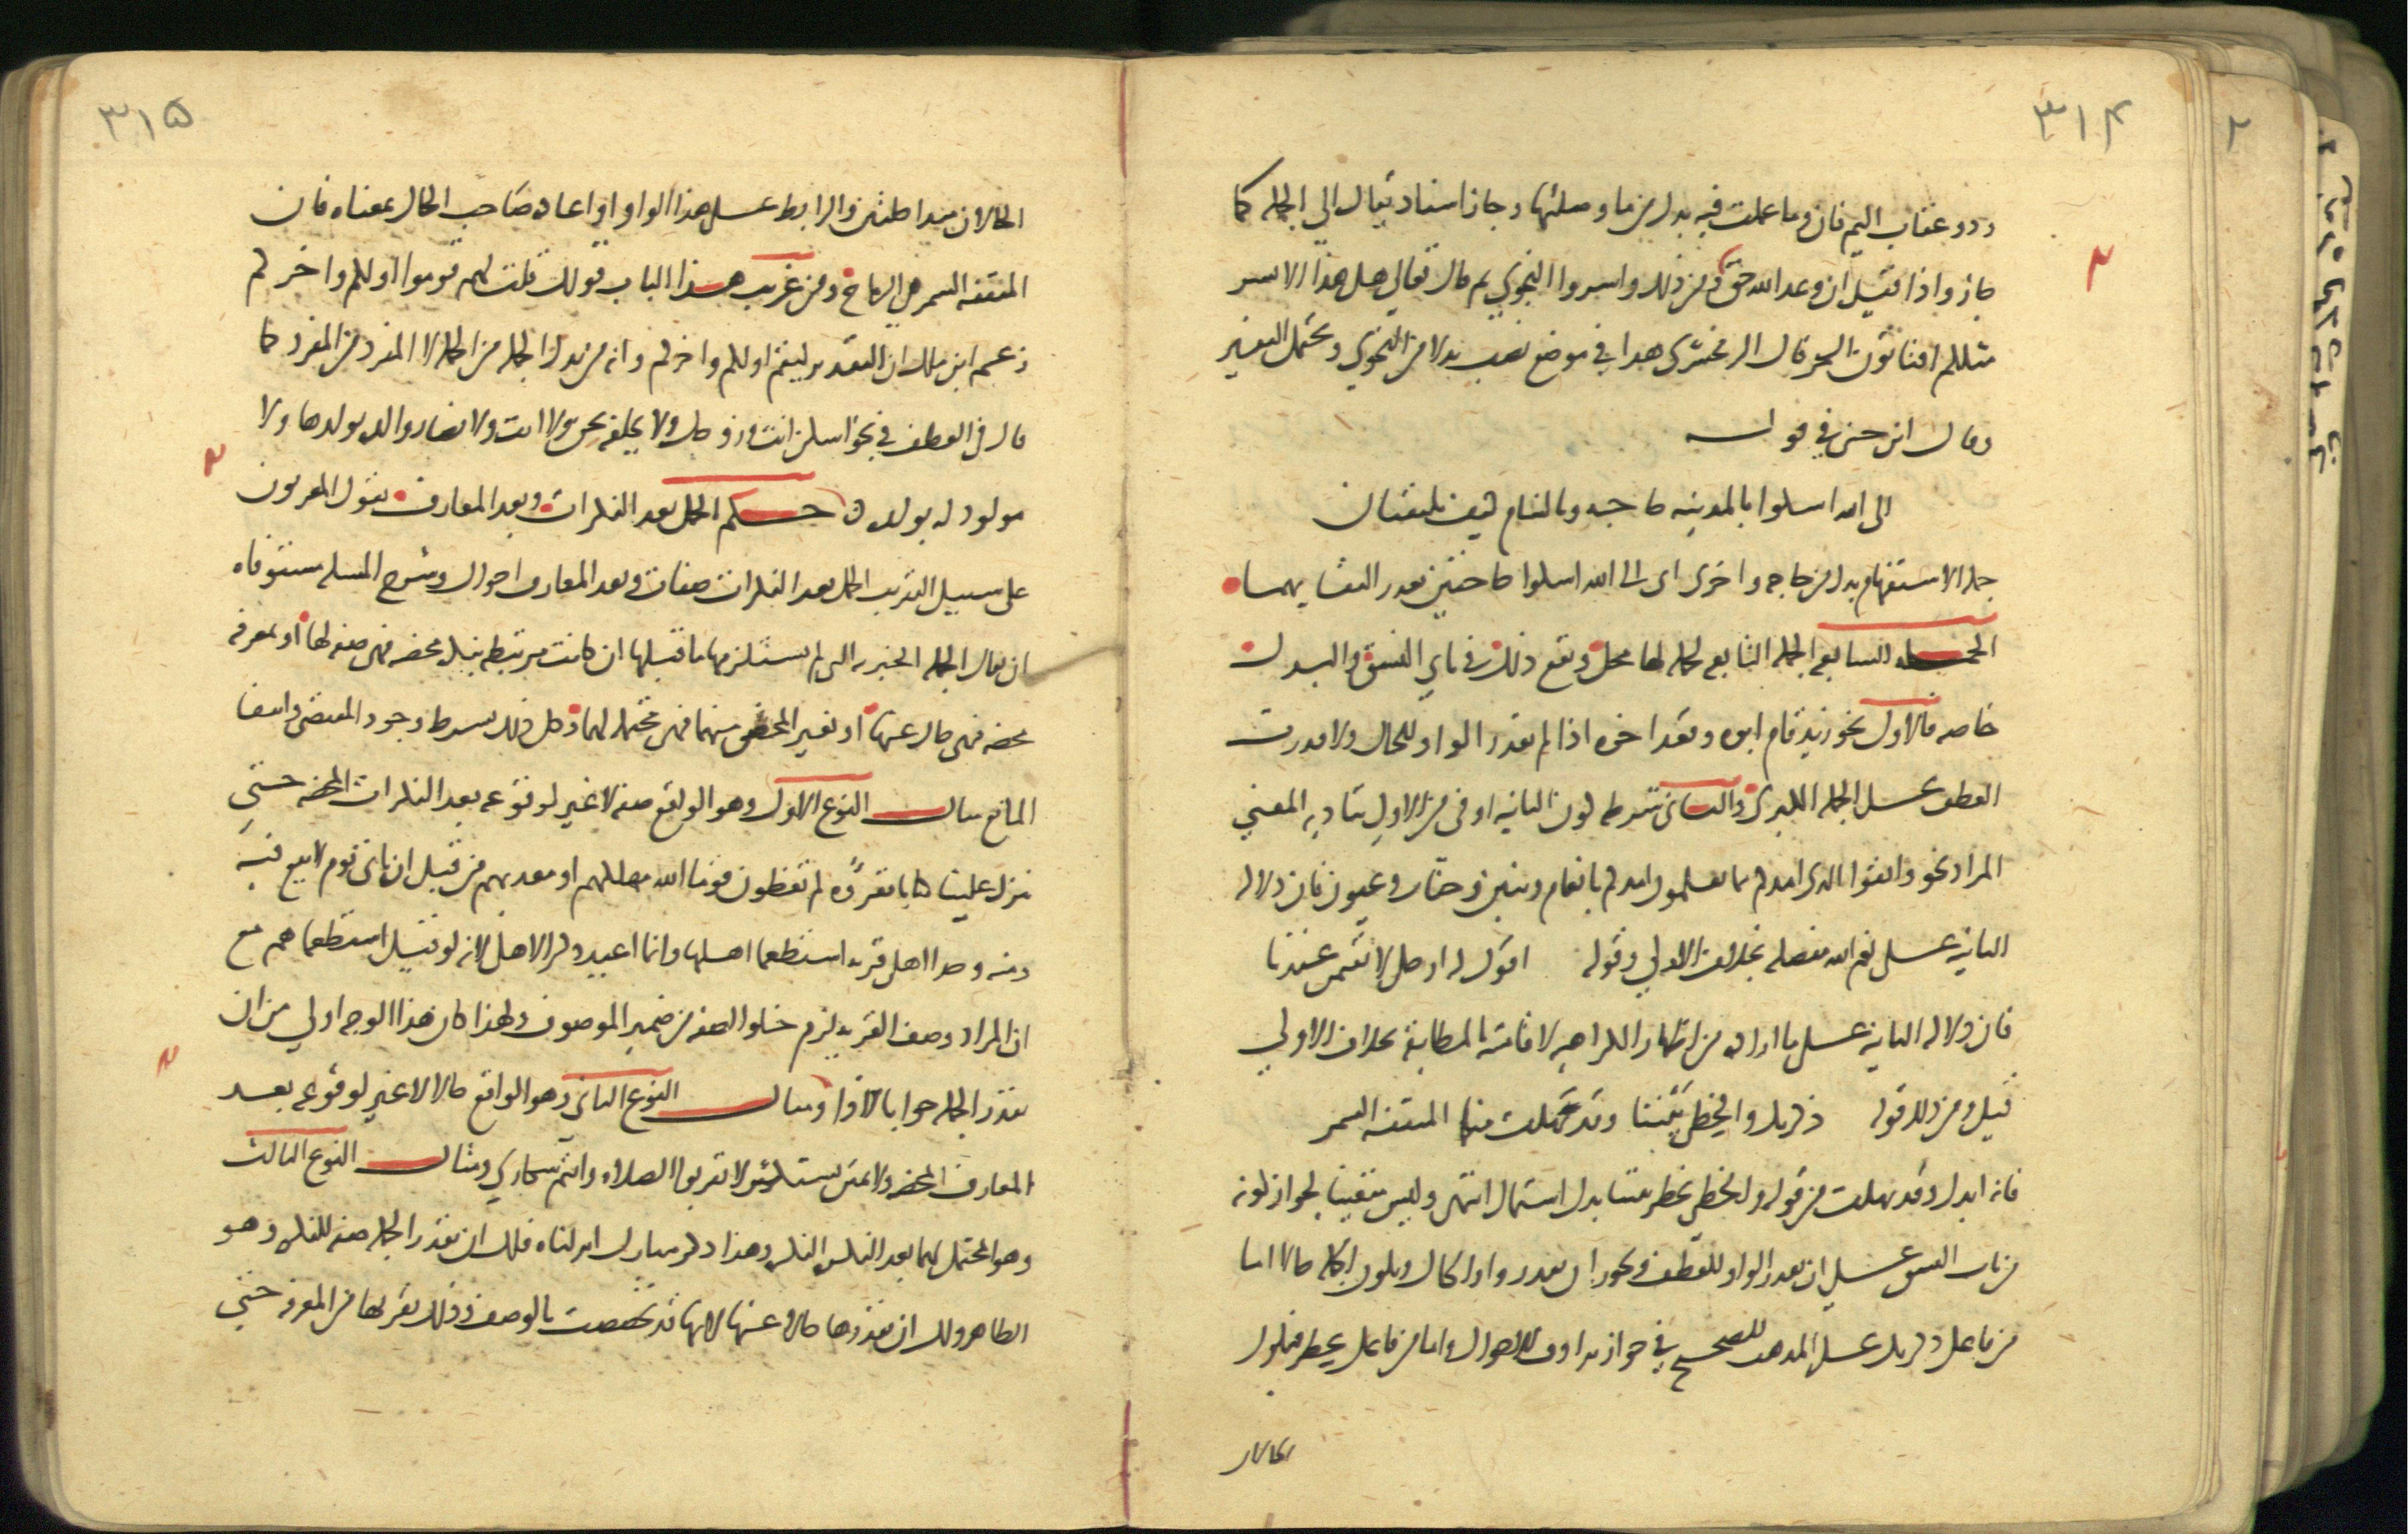 ٣١٤
وذو عقاب اليم فان وما عملت فيه بدل من ما وصلتها وجاز اسناد يقال الي الجمله كما
جاز واذا قيل ان وعد الله حق ومن ذلك واسروا النجوي ثم قال تعالي هل هذا الا بشر
مثلكم افتاتون السحر قال الزمخشري هذا في موضع نصب بدلا من النجوي ويحتمل التفسير
وقال ابن جني في قوله
الى الله اشكوا بالمدينه حاجه وبالشام كيف يلتقيان
جمله الاستفهام بدل من حاجه واخرى اى الى الله اشكوا حاجتين تعذر التقايهما
الجمله السابعه الجمله التابعه لجمله لها محل ويقع ذلك في بابي النسق والبدل
خاصه فالاول نحو زيد قام ابوه وقعد اخوه اذا لم تقدر الواو للحال ولا قدرت
العطف على الجمله الكبرى والثاني شرطه كون الثانيه اوفى من الاولي بتاديه المعني
المراد نحو واتقوا الذى امدكم بما تعلمون امدكم بانعام وبنين وجنات وعيون فان دلاله
الثانيه على نعم الله مفصله بخلاف الاولي وقوله اقول له ارحل لا تقيمن عندنا
فان دلاله الثانيه على ما اراده من اظهار الكراهيه لاقامته بالمطابقة بخلاف الاولي
قيل ومن ذلك قوله ذكرتك والخطي يخطر بيننا وقد نهلت منا المثقفه السمر
فانه ابدل وقد نهلت من قوله والخطي يخطر بيننا بدل اشتمال انتهى وليس متعينا لجواز كونه
من باب النسق على ان تقدر الواو للعطف ويجوز ان تقدر واو الحال وتكون الجمله حالا اما
من فاعل ذكرتك على المذهب الصحيح في جواز ترادف الاحوال واما من فاعل يخطر فيكون
الحالان
٣١٥
الحالان متداخلتين والرابط على هذا الواو واعاده صاحب الحال بمعناه فان
المثقفه السمر هي الرماح ومن غريب هذا الباب قولك قلت لهم قوموا اولكم واخركم
زعم ابن مالك ان التقدير ليقم اولكم واخركم وانه من بدل الجمله من الجمله لا المفرد من المفرد كما
قال في العطف في نحو اسكن انت وزوجك ولا نخلفه نحن ولا انت ولا تضار والده بولدها ولا
مولود له بولده حكم الجمل بعد النكرات وبعد المعارف يقول المعربون
على سبيل التقريب الجمل بعد النكرات صفات وبعد المعارف احوال وشرح المسله مستوفاه
ان يقال الجمله الخبريه التى لم يستلزمها ما قبلها ان كانت مرتبطه بنكره محضه فهى صفه لها او بمعرفه
محضه فهى حال عنها او بغير المحض منهما فهى محتمله لهما وكل ذلك بشرط وجود المقتضى وانتفا
المانع مثال النوع الاول وهو الواقع صفه لا غير لوقوعه بعد النكرات المحضه حتي
تنزل علينا كتابا نقرؤه لم تعظون قوما الله مهلكهم او معذبهم من قبل ان ياتى يوم لا بيع فيه
ومنه وجدا اهل قريه استطعما اهلها وانما اعيد ذكر الاهل لانه لو قيل استطعماهم مع
ان المراد وصف القريه لزم خلو الصفه من ضمير الموصوف ولهذا كان هذا الوجه اولي من ان
تقدر الجمله جوابا لاذا ومثال النوع الثانى وهو الواقع حالا لا غير لوقوعه بعد
المعارف المحضه ولا تمنن تستكثر لا تقربوا الصلاه وانتم سكاري ومثال النوع الثالث
وهو المحتمل لهما بعد النكره النكره وهذا ذكر مبارك انزلناه فلك ان تقدر الجمله صفه للنكره وهو
الظاهر ولك ان تقدرها حالا عنها لانها قد تخصصت بالوصف وذلك يقربها من المعرفه حتي